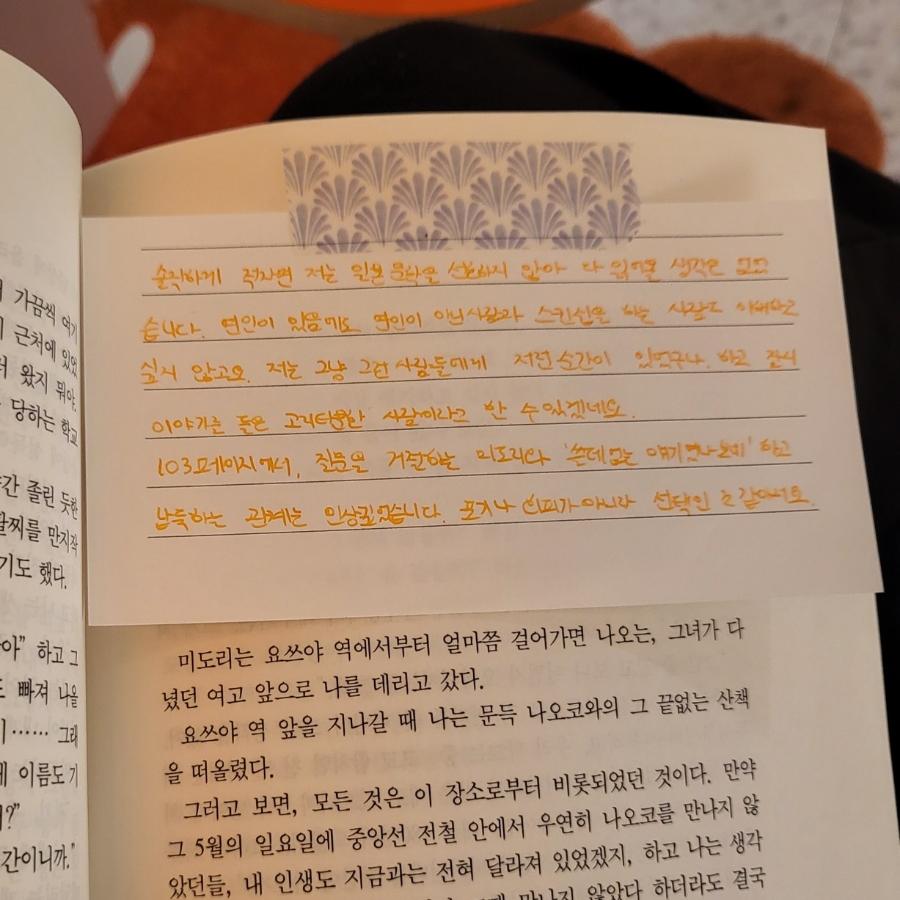 솔직하게 적자면 저는 일본문학을 선호하지 않아 다 읽어볼 생각은 없었
습니다. 연인이 있음에도 연인이 아닌사람과 스킨십을 하는 사람도 이해하고
싶지 않고요. 저는 그냥 그런 사람들에게 저런 순간이 있었구나. 하고 잠시
이야기를 들은 고리타분한 사람이라고 할 수있겠네요.
103페이지에서, 질문을 거절하는 미도리와 '쓸데없는 얘기였나보네' 하고
납득하는 관계는 인상깊었습니다. 포기나 회피가 아니라 선택인 것 같아서요.
가끔씩 여기
근처에 있었
왔지 뭐야.
당하는 학교
간 졸린 듯한
팔찌를 만지작
기도 했다.
아" 하고 그
빠져 나올
…… 그래
이름도 기
간이니까."
미도리는 요쓰야 역에서부터 얼마쯤 걸어가면 나오는, 그녀가 다
녔던 여고 앞으로 나를 데리고 갔다.
요쓰야 역 앞을 지나갈 때 나는 문득 나오코와의 그 끝없는 산책
을 떠올렸다.
그러고 보면, 모든 것은 이 장소로부터 비롯되었던 것이다. 만약
그 5월의 일요일에 중앙선 전철 안에서 우연히 나오코를 만나지 않
았던들, 내 인생도 지금과는 전혀 달라져 있었겠지, 하고 나는 생각
만나지 않았다 하더라도 결국